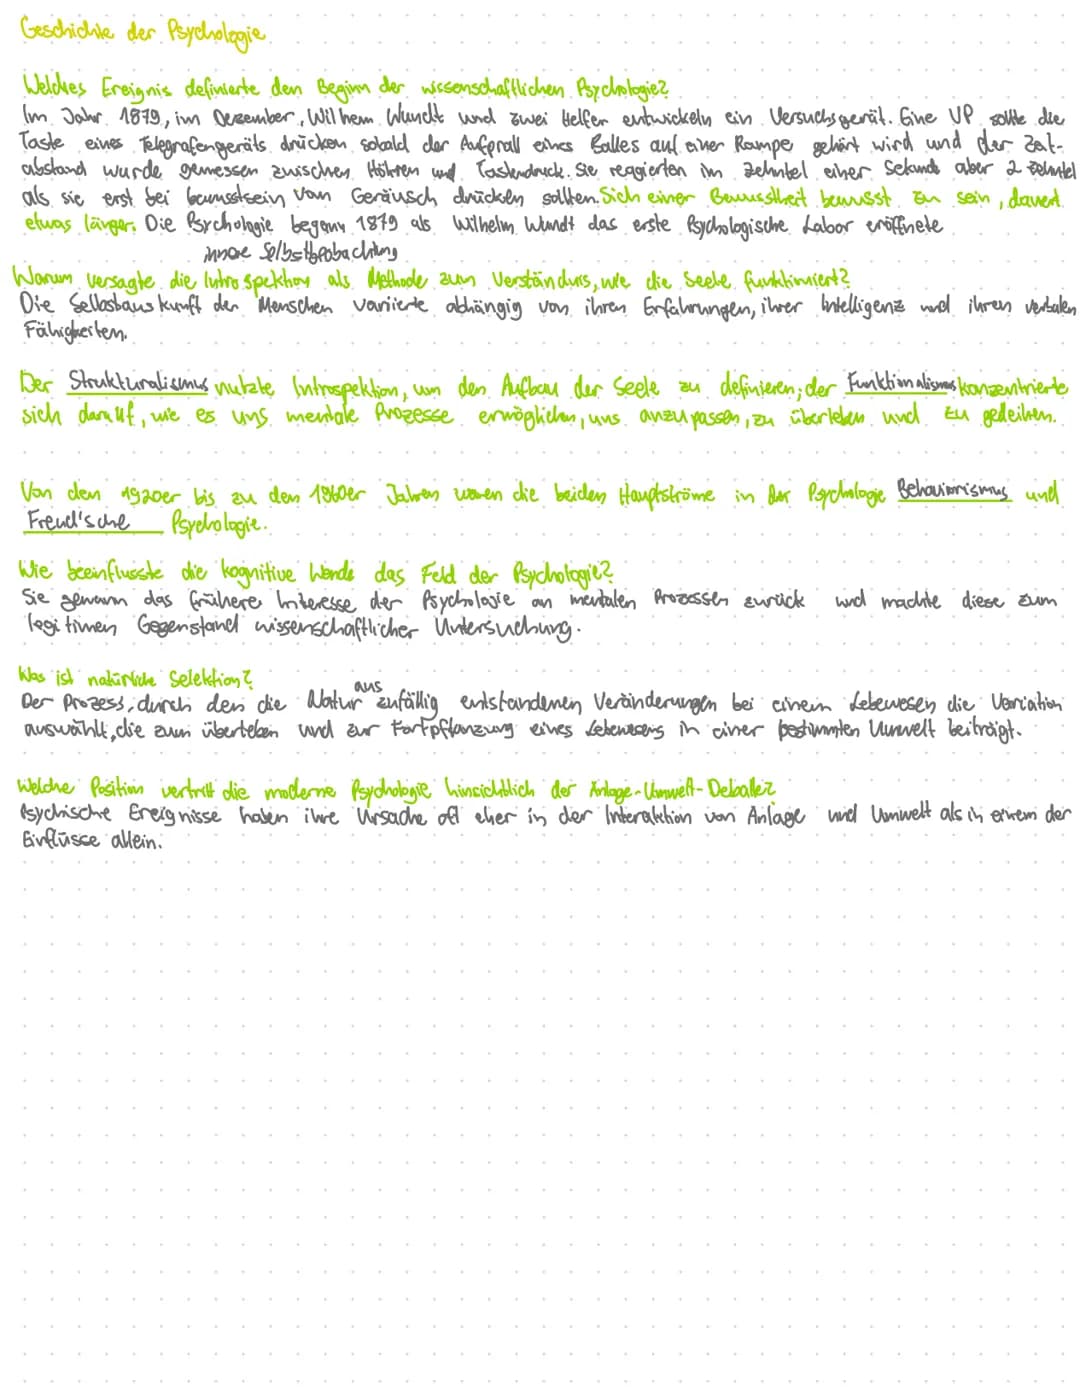 Geschichte der Psychologie
Welches Ereignis definierte den Beginn der wissenschaftlichen Psychologie?
Im Jahr 1879, im Dezember, Wilhem Wundt und zwei Helfer entwickeln ein Versuchsgerät. Eine VP sollte die
Taste eines Telegrafengeräts drücken, sobald der Aufprall eines Balles auf einer Rampe gehört wird und der Zeit-
abstand wurde gemessen zwischen Höhren und Tastendruck. Sie reagierten im Zehntel einer Sekunde aber 2 Zehntel
als sie erst bei bewusstsein vom Geräusch drücken sollten. Sich einer Bewusstheit bewusst zu sein, dauert
etwas länger. Die Psychologie begann 1879 als Wilhelm Wundt das erste Psychologische Labor eröffnete
innere Selbstbeobachtung
Warum versagte die Introspektion als Methode zum Verständnis, wie die Seele funktioniert?
Die Selbstauskunft der Menschen variierte abhängig von ihren Erfahrungen, ihrer Intelligenz und ihren verbalen
Fähigkeiten.
Der Strukturalismus nutzte Introspektion, um den Aufbau der Seele zu definieren; der Funktionalismus konzentrierte
sich darauf, wie es uns mentale Prozesse ermöglichen, uns anzupassen, zu überleben und zu gedeihen.
Von den 1920er bis zu den 1960er Jahren waren die beiden Hauptströme in der Psychologie Behaviorismus und
Freud'sche Psychologie.
Wie beeinflusste die kognitive Wende das Feld der Psychologie?
Sie gewann das frühere Interesse der Psychologie an mentalen Prozessen zurück und machte diese zum
legitimen Gegenstand wissenschaftlicher Untersuchung.
Was ist natürliche Selektion?
aus
Der Prozess, durch den die Natur zufällig entstandenen Veränderungen bei einem Lebewesen die Variation
auswählt, die zum überleben und zur Fortpflanzung eines Lebewesens in einer bestimmten Umwelt beiträgt.
Welche Position vertritt die moderne Psychologie hinsichtlich der Anlage-Umwelt-Debatte?
Psychische Ereignisse haben ihre Ursache oft eher in der Interaktion von Anlage und Umwelt als in einem der
Einflüsse allein.